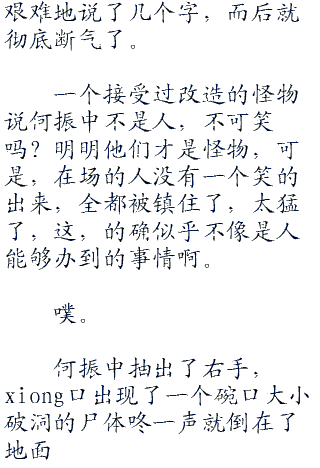 艰难地说了几个字，而后就
彻底断气了。
一个接受过改造的怪物
说何振中不是人，不可笑
吗？明明他们才是怪物，可
是，在场的人没有一个笑的
出来，全都被镇住了，太猛
了，这，的确似乎不像是人
能够办到的事情啊。
噗。
何振中抽出了右手，
xiong口出现了一个碗口大小
破洞的尸体咚一声就倒在了
地面